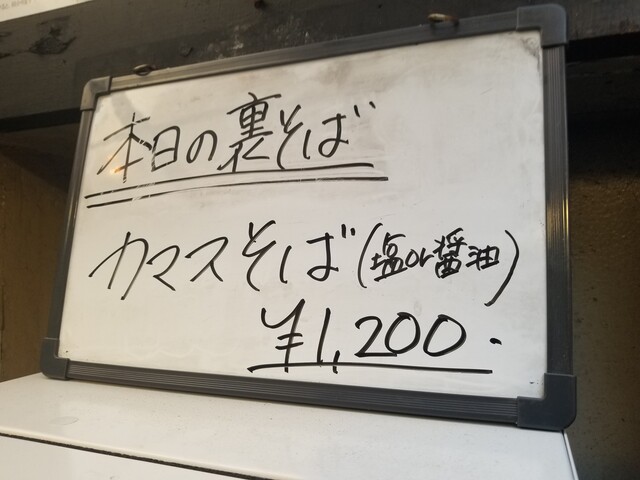 本日の裏そば
カマスそば(塩or醤油)
¥1,200.